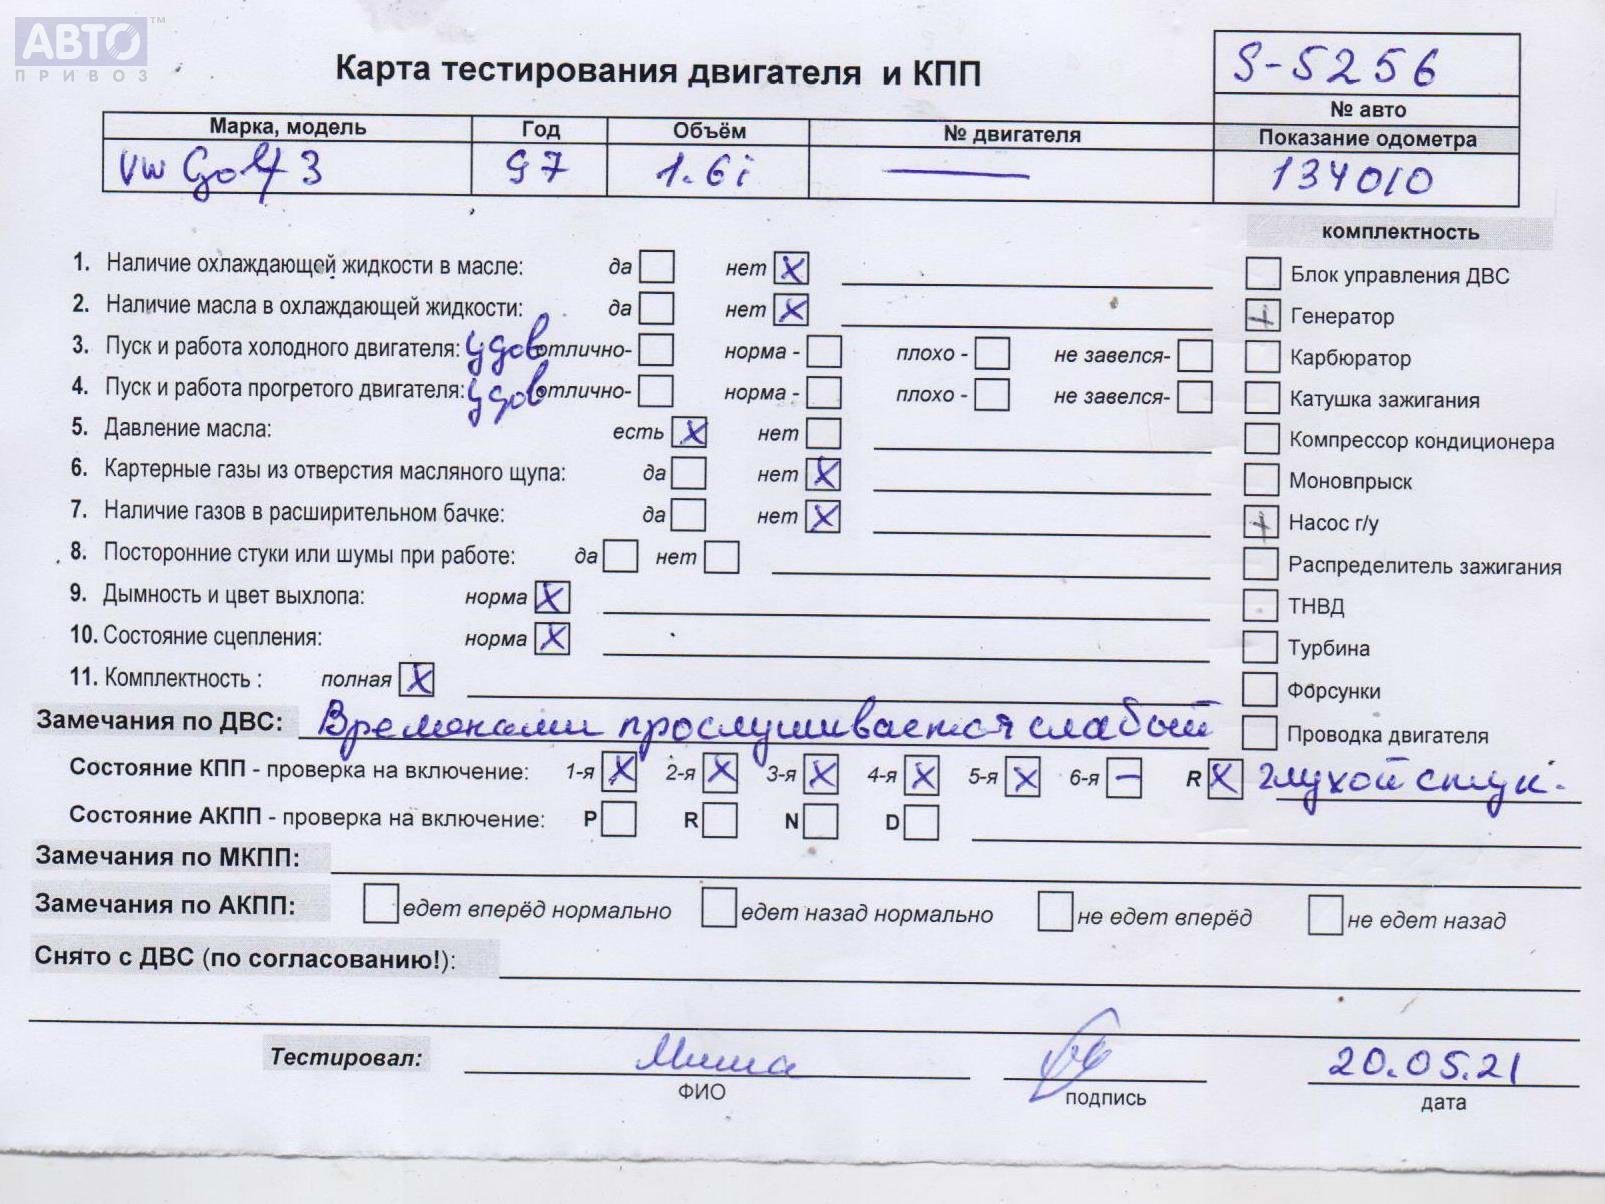 АВТО™
ПРИВОЗ
Карта тестирования двигателя и КПП
S-5256
№ авто
Марка, модель Год Объём № двигателя Показание одометра
VW Golf 3 97 1.6i — 134010
комплектность
1. Наличие охлаждающей жидкости в масле: да нет X
Блок управления ДВС
2. Наличие масла в охлаждающей жидкости: да нет X
+ Генератор
3. Пуск и работа холодного двигателя: удов отлично- норма - плохо - не завелся-
Карбюратор
4. Пуск и работа прогретого двигателя: удов отлично- норма - плохо - не завелся-
Катушка зажигания
5. Давление масла: есть X нет
Компрессор кондиционера
6. Картерные газы из отверстия масляного щупа: да нет X
Моновпрыск
7. Наличие газов в расширительном бачке: да нет X
+ Насос г/у
8. Посторонние стуки или шумы при работе: да нет
Распределитель зажигания
9. Дымность и цвет выхлопа: норма X
ТНВД
10. Состояние сцепления: норма X
Турбина
11. Комплектность : полная X
Форсунки
Замечания по ДВС: Временами прослушивается слабый
Проводка двигателя
Состояние КПП - проверка на включение: 1-я X 2-я X 3-я X 4-я X 5-я X 6-я — R X глухой стук.
Состояние АКПП - проверка на включение: P R N D
Замечания по МКПП:
Замечания по АКПП: едет вперёд нормально едет назад нормально не едет вперёд не едет назад
Снято с ДВС (по согласованию!):
Тестировал: Миша 20.05.21
ФИО подпись дата